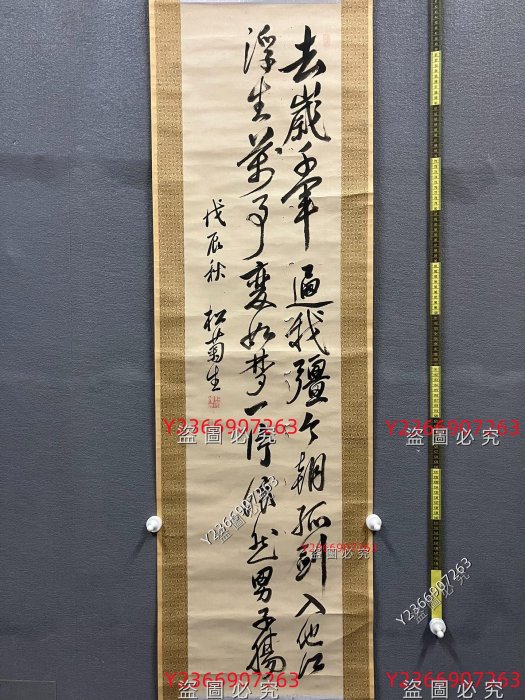 去歲千軍逼我疆今朝孤劍入他江
浮生萬事變如夢一依然男子腸
戊辰秋 松菊生
Y2366907263
盜圖必究
Y2366907263
盜圖必究
Y2366907263
盜圖必究
Y2366907263
盜圖必究
Y2366907263
盜圖必究
Y2366907263
盜圖必究
Y2366907263
盜圖必究